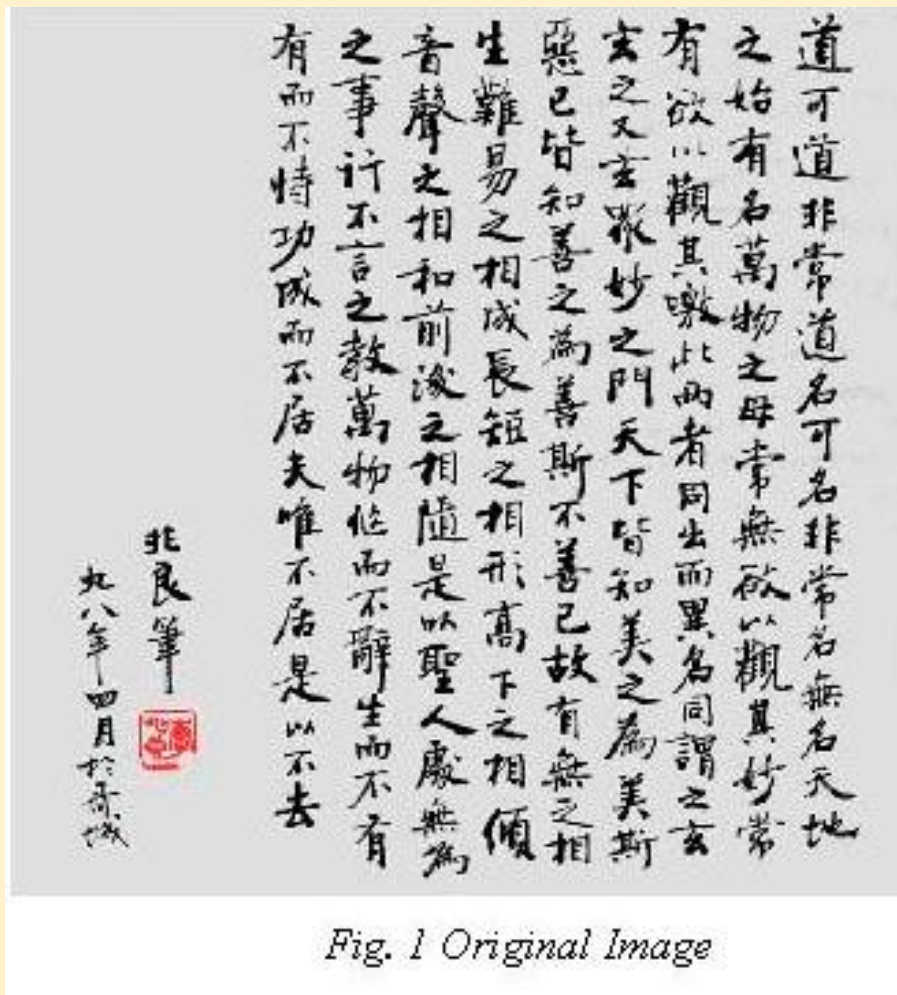 道可道非常道名可名非常名無名天地
之始有名萬物之母常無欲以觀其妙常
有欲以觀其噭此兩者同出而異名同謂之玄
玄之又玄眾妙之門天下皆知美之為美斯
惡已皆知善之為善斯不善已故有無之相
生難易之相成長短之相形高下之相傾
音聲之相和前後之相隨是以聖人處無為
之事行不言之教萬物作而不辭生而不有
有而不恃功成而不居夫唯不居是以不去
北良筆
九八年四月於
Fig. 1 Original Image